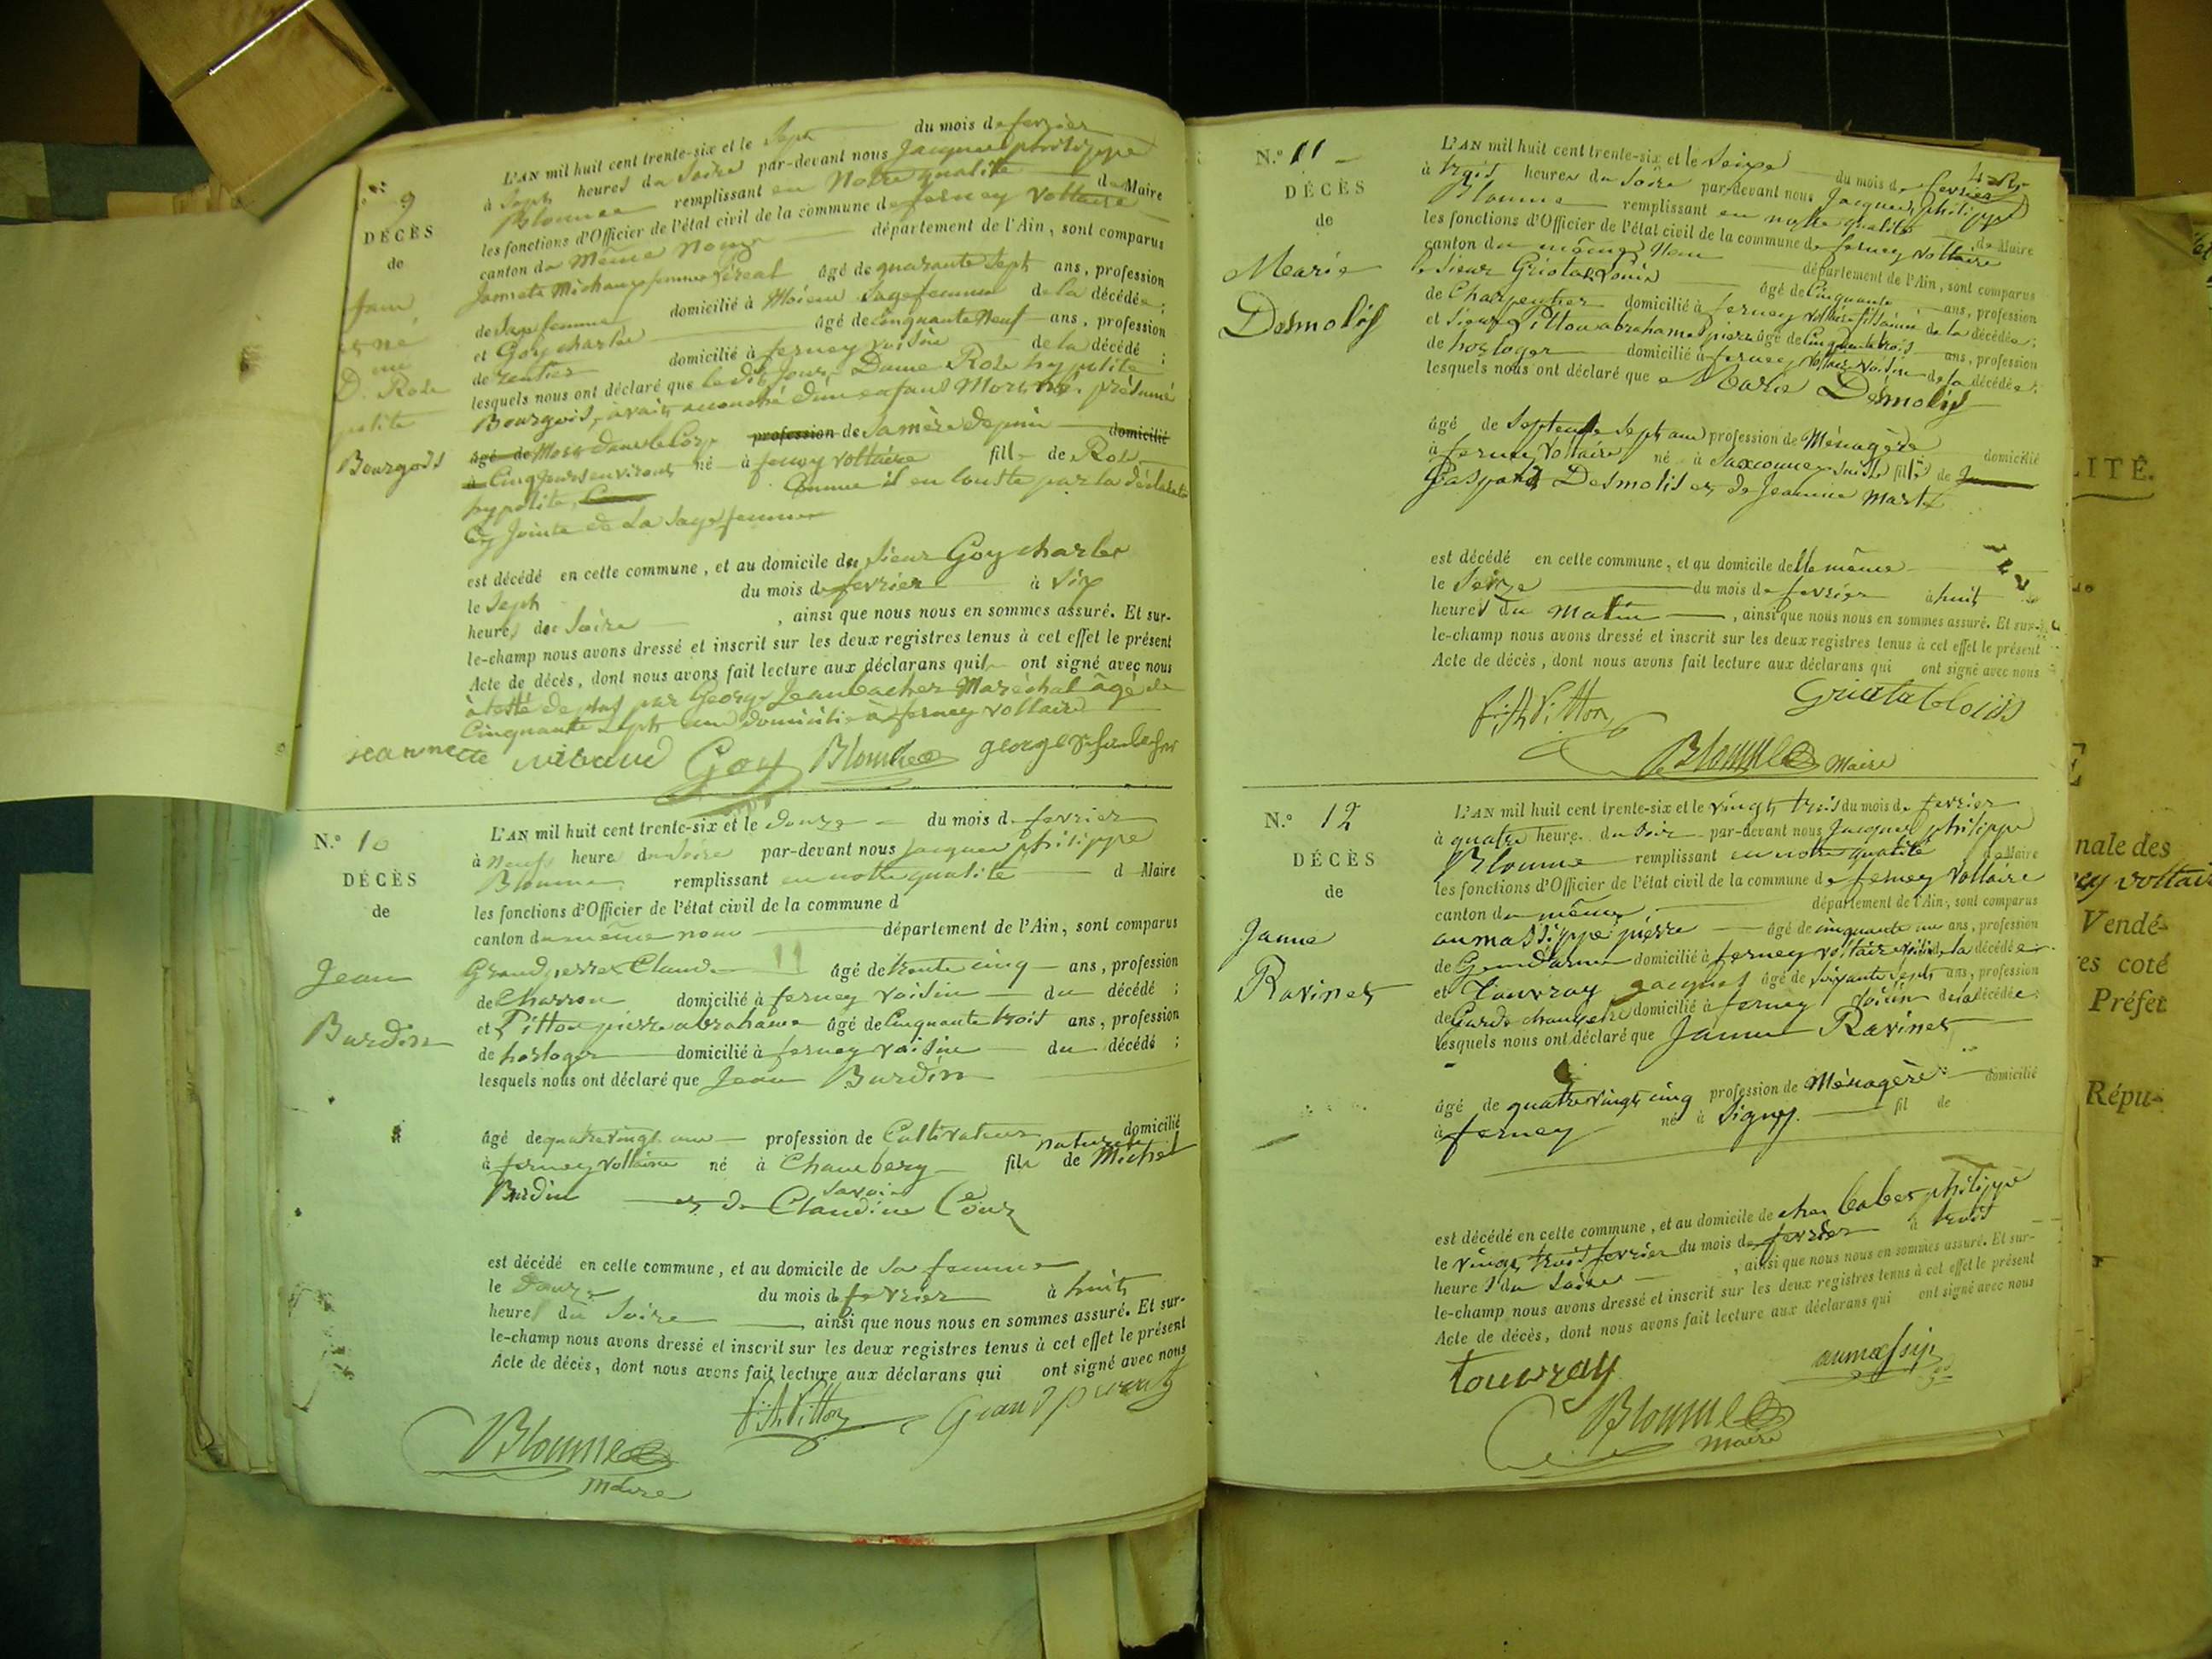 N.° 9
DÉCÈS
de
D. Rose
Bourgois
L'AN mil huit cent trente-six et le Sept du mois de fevrier
à Sept heures du Soire par-devant nous Jacques philippe
Blonme remplissant en Notre qualité de Maire
les fonctions d'Officier de l'état civil de la commune de ferney Voltaire
canton du Même Nom département de l'Ain, sont comparus
femme âgé de quarante Sept ans, profession
de Sage femme domicilié à Moiens Sage femme de la décédée;
et Goy charles âgé de Cinquante Neuf ans, profession
de rentier domicilié à ferney voisin de la décédé ;
lesquels nous ont déclaré que le dit jour, Dame Rose hypolite
Bourgois, avait accouché d'un enfant Mort né. présumé
âgé de Mort dans le Corps profession de Sa mère depuis domicilié
à Cinq jours environs né à ferney Voltaire fill de Rose
hypolite, Comme il en Conste par la déclaration
Cy Jointe de La Sage femme
est décédé en cette commune, et au domicile du Sieur Goy charles
le Sept du mois de fevrier à Six
heures du Soire , ainsi que nous nous en sommes assuré. Et sur-
le-champ nous avons dressé et inscrit sur les deux registres tenus à cet effet le présent
Acte de décès, dont nous avons fait lecture aux déclarans qui ont signé avec nous
âgé de
Cinquante Sept ans domicilié à ferney Voltaire
Goy Blonme
N.° 10
DÉCÈS
de
Jean
Burdin
L'AN mil huit cent trente-six et le Douze du mois de fevrier
à Neuf heure du Soire par-devant nous Jacques philippe
Blonme remplissant en notre qualité d Maire
les fonctions d'Officier de l'état civil de la commune d
canton du même nom département de l'Ain, sont comparus
Grandperret Claude âgé de trente cinq ans, profession
de Charron domicilié à ferney voisin du décédé ;
et Pitton pierre abrahame âgé de Cinquante trois ans, profession
de horloger domicilié à ferney voisin du décédé ;
lesquels nous ont déclaré que Jean Burdin
âgé de quatre vingt ans profession de Cultivateur domicilié
à ferney Voltaire né à Chambery fils naturel de Michel
Burdin Savoie
et de Claudine
est décédé en cette commune, et au domicile de Sa femme
le Douze du mois de fevrier à huit
heures du Soire , ainsi que nous nous en sommes assuré. Et sur-
le-champ nous avons dressé et inscrit sur les deux registres tenus à cet effet le présent
Acte de décès, dont nous avons fait lecture aux déclarans qui ont signé avec nous
Pitton Grandperret
Blonme
Maire
N.° 11
DÉCÈS
de
Marie
Desmolis
L'AN mil huit cent trente-six et le Seize du mois de fevrier
à trois heures du Soire par-devant nous Jacques philippe
Blonme remplissant en notre qualité de Maire
les fonctions d'Officier de l'état civil de la commune de ferney voltaire
canton du même Nom département de l'Ain, sont comparus
le Sieur Louis âgé de Cinquante ans, profession
de Charpentier domicilié à ferney voltaire de la décédée;
et Sieur Pitton abrahame pierre âgé de Cinquante trois ans, profession
de horloger domicilié à ferney voltaire voisin de la décédée;
lesquels nous ont déclaré que Marie Desmolis
âgé de Septente Sept ans profession de Ménagère domicilié
à ferney Voltaire né à Suisse fille de
Gaspard Desmolis et de Jeannie
est décédé en cette commune, et au domicile de Elle même
le Seize du mois de fevrier à huit
heures du Matin , ainsi que nous nous en sommes assuré. Et sur-
le-champ nous avons dressé et inscrit sur les deux registres tenus à cet effet le présent
Acte de décès, dont nous avons fait lecture aux déclarans qui ont signé avec nous
Pitton
Blonme Maire
N.° 12
DÉCÈS
de
Janne
Ravinet
L'AN mil huit cent trente-six et le vingt trois du mois de fevrier
à quatre heure du Soir par-devant nous Jacques philippe
Blonme remplissant en notre qualité de Maire
les fonctions d'Officier de l'état civil de la commune de ferney Voltaire
canton du même département de l'Ain, sont comparus
aumassippe pierre âgé de cinquante un ans, profession
de Gendarme domicilié à ferney voltaire voisin de la décédée
et Touvray Jacques âgé de Soixante Sept ans, profession
de Garde champetre domicilié à ferney voisin de la décédée;
lesquels nous ont déclaré que Janne Ravinet
âgé de quatre vingt cinq profession de Ménagère domicilié
à ferney né à Signy fil de
est décédé en cette commune, et au domicile de chez philippe
le vingt trois fevrier du mois de fevrier à trois
heures du Soire , ainsi que nous nous en sommes assuré. Et sur-
le-champ nous avons dressé et inscrit sur les deux registres tenus à cet effet le présent
Acte de décès, dont nous avons fait lecture aux déclarans qui ont signé avec nous
touvray aumassip
Blonme
Maire
LITÉ.
nale des
voltair
Vendé-
es coté
Préfet
Répu-